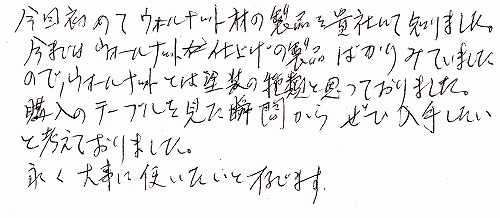 今回初めてウォールナット材の製品を貴社にて知りました。
今まではウォールナット仕上げの製品ばかりみていました
ので、ウォールナットとは塗装の種類と思っておりました。
購入のテーブルを見た瞬間からぜひ入手したい
と考えておりました。
永く大事に使いたいと存じます。